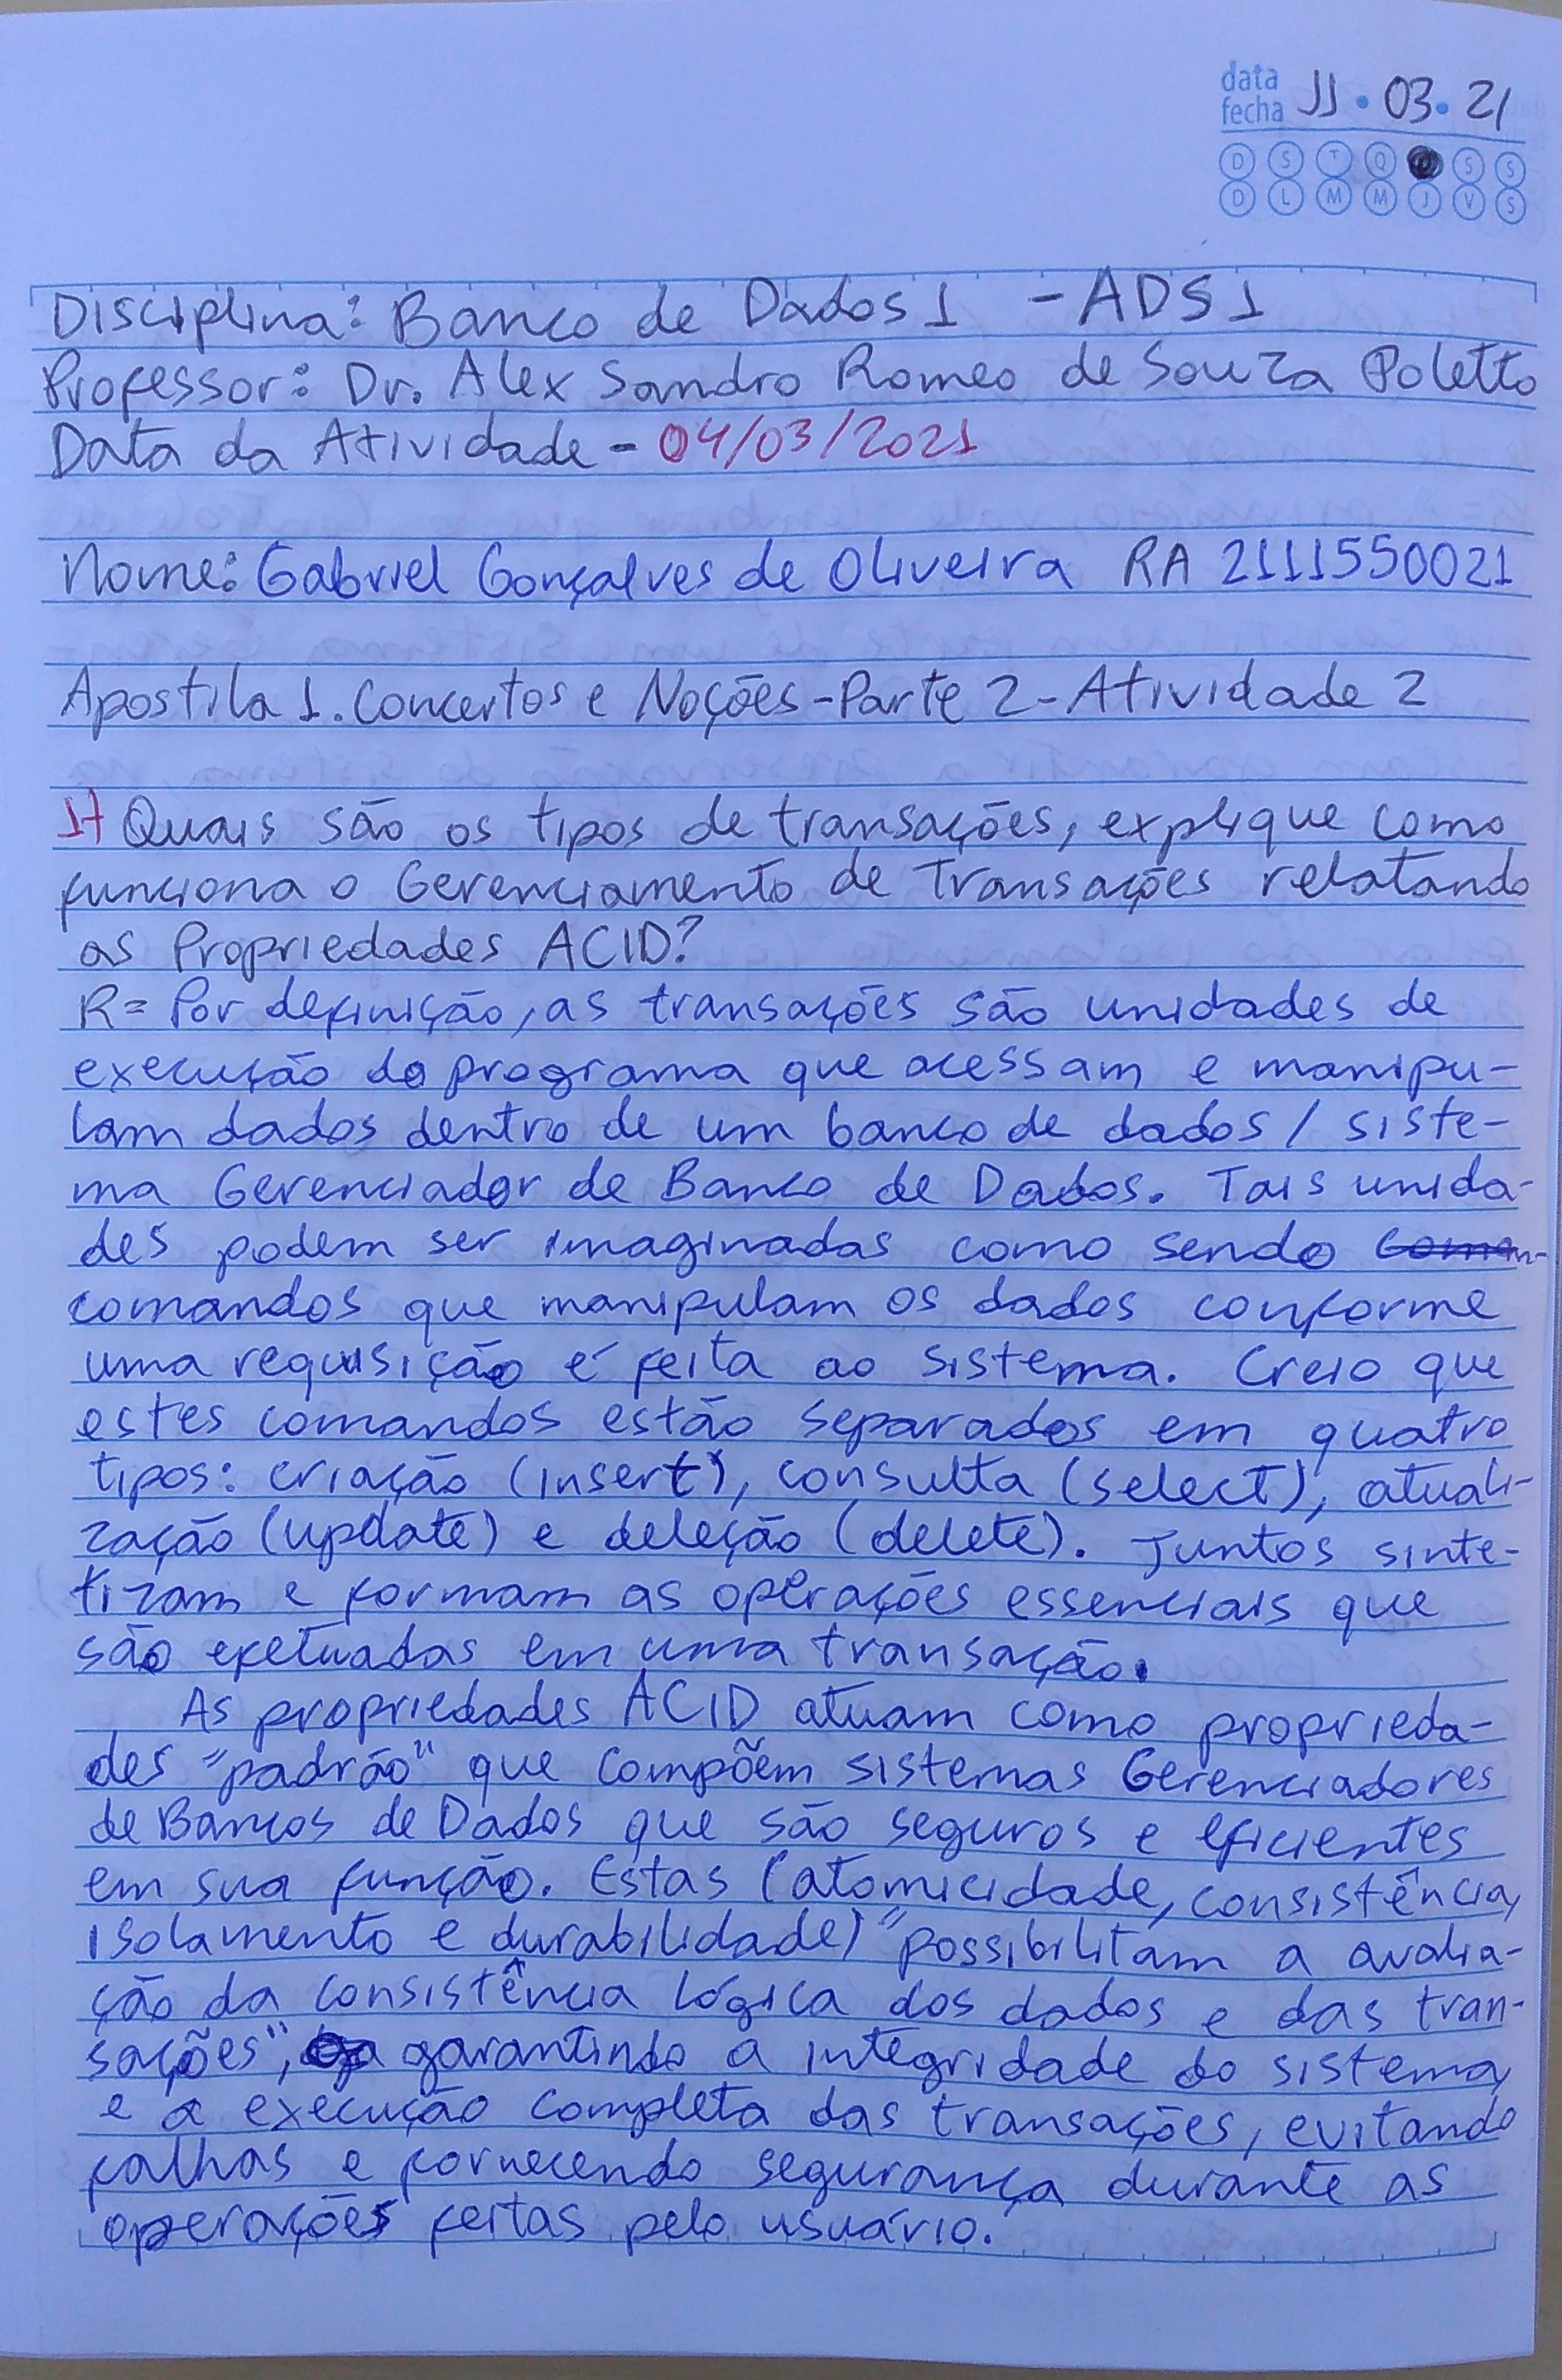 data
fecha 11 • 03 • 21
D S T Q S S
D L M M J V S
Disciplina: Banco de Dados 1 - ADS1
Professor: Dr. Alex Sandro Romeo de Souza Poletto
Data da Atividade - 04/03/2021
Nome: Gabriel Gonçalves de Oliveira RA 2111550021
Apostila 1. Conceitos e Noções - Parte 2 - Atividade 2
1) Quais são os tipos de transações, explique como
funciona o Gerenciamento de Transações relatando
as Propriedades ACID?
R= Por definição, as transações são unidades de
execução do programa que acessam e manipu-
lam dados dentro de um banco de dados / siste-
ma Gerenciador de Banco de Dados. Tais unida-
des podem ser imaginadas como sendo coman-
comandos que manipulam os dados conforme
uma requisição é feita ao sistema. Creio que
estes comandos estão separados em quatro
tipos: criação (insert), consulta (select), atuali-
zação (update) e deleção (delete). Juntos sinte-
tizam e formam as operações essenciais que
são efetuadas em uma transação.
As propriedades ACID atuam como proprieda-
des "padrão" que compõem sistemas Gerenciadores
de Bancos de Dados que são seguros e eficientes
em sua função. Estas (atomicidade, consistência,
isolamento e durabilidade) "possibilitam a avalia-
ção da consistência lógica dos dados e das tran-
sações", garantindo a integridade do sistema,
e a execução completa das transações, evitando
falhas e fornecendo segurança durante as
operações feitas pelo usuário.